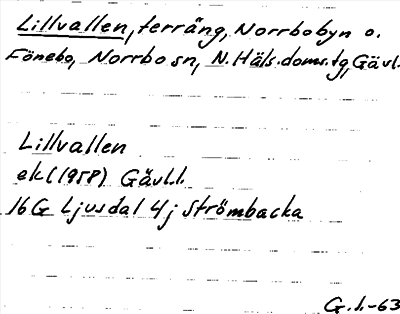 Lillvallen, terräng, Norrbobyn o.
Fönebo, Norrbo sn, N. Häls. doms.tg, Gävl.
Lillvallen
ek (1958) Gävl.l.
16G Ljusdal 4j Strömbacka
G.l.-63